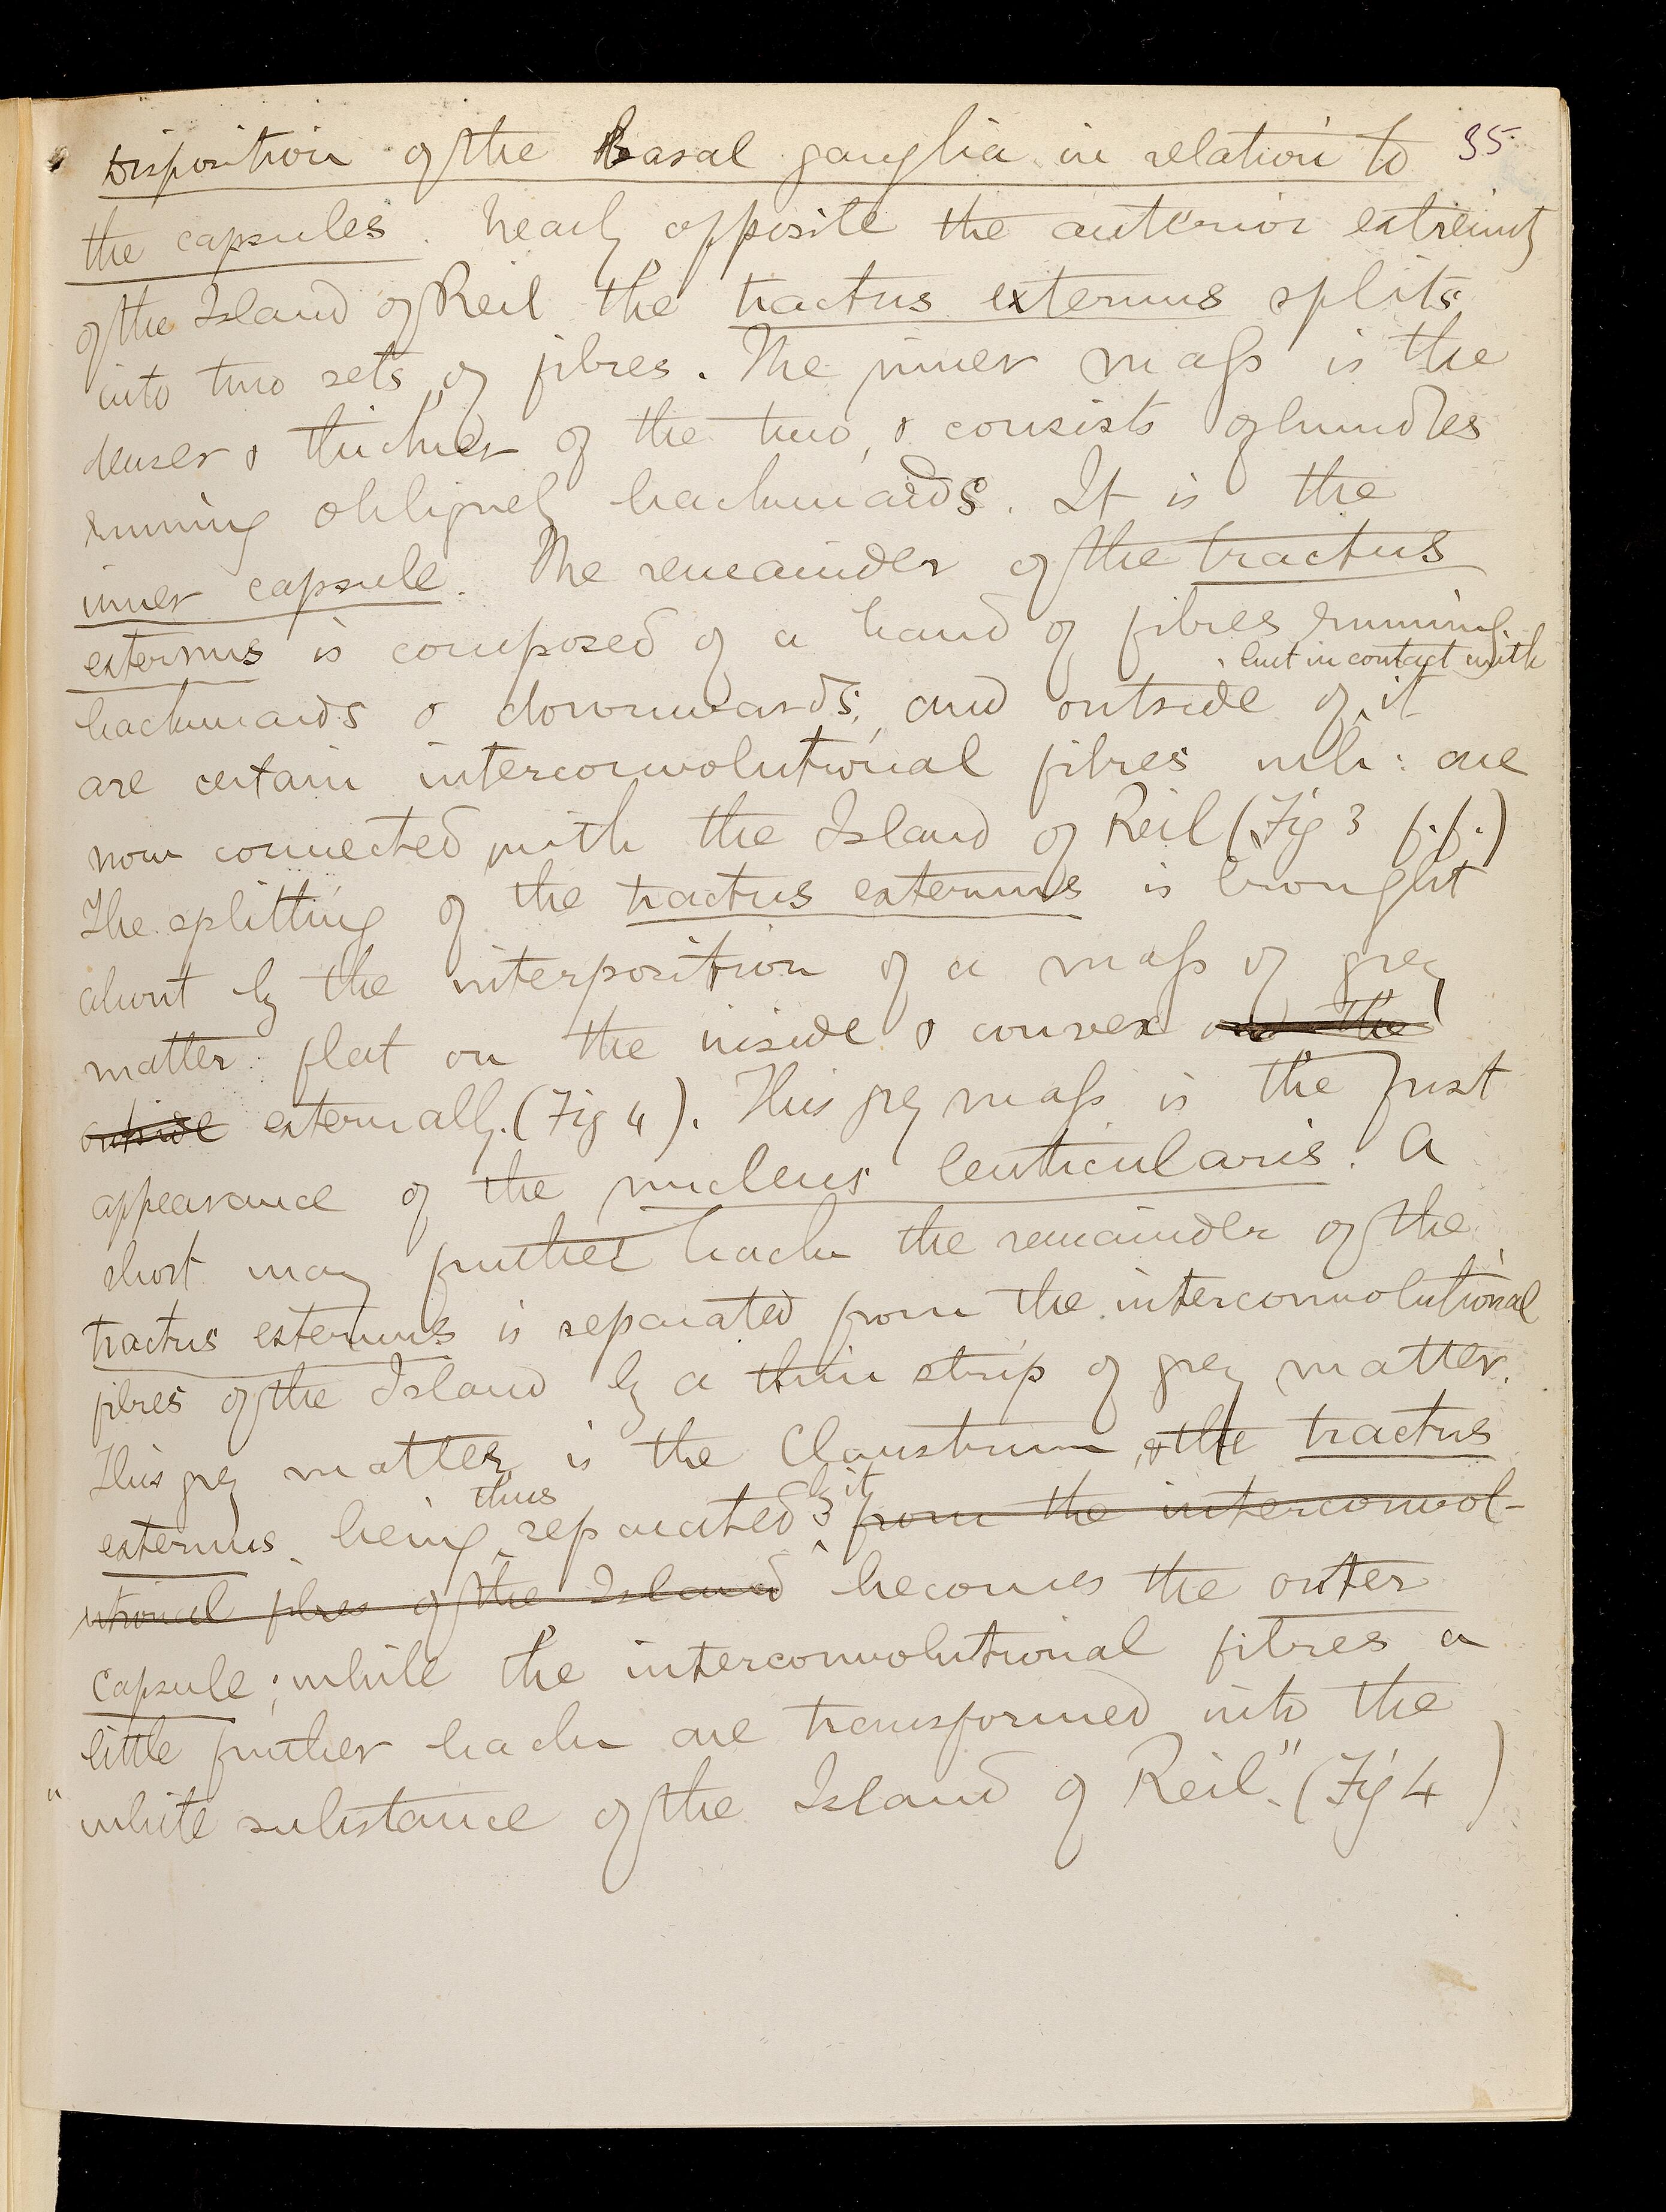 Disposition of the Basal ganglia in relation to 35
the capsules. Nearly opposite the anterior extremity
of the Island of Reil the tractus externus splits
into two sets of fibres. The inner mass is the
denser & thicker of the two, & consists of bundles
running obliquely backwards. It is the
inner capsule. The remainder of the tractus
externus is composed of a band of fibres running
but in contact with
backwards & downwards; and outside of it
are certain interconvolutional fibres wh: are
now connected with the Island of Reil (Fig 3 f.f.)
The splitting of the tractus externus is brought
about by the interposition of a mass of grey
matter flat on the inside & convex on the
outside externally. (Fig 4). This grey mass is the first
appearance of the nucleus lenticularis. A
short way further back the remainder of the
tractus externus is separated from the interconvolutional
fibres of the Island by a thin strip of grey matter.
This grey matter is the Claustrum, & the tractus
thus by it
externus being separated from the interconvol-
utional fibres of the Island becomes the outer
capsule; while the interconvolutional fibres a
little further back are transformed into the
"white substance of the Island of Reil." (Fig 4)